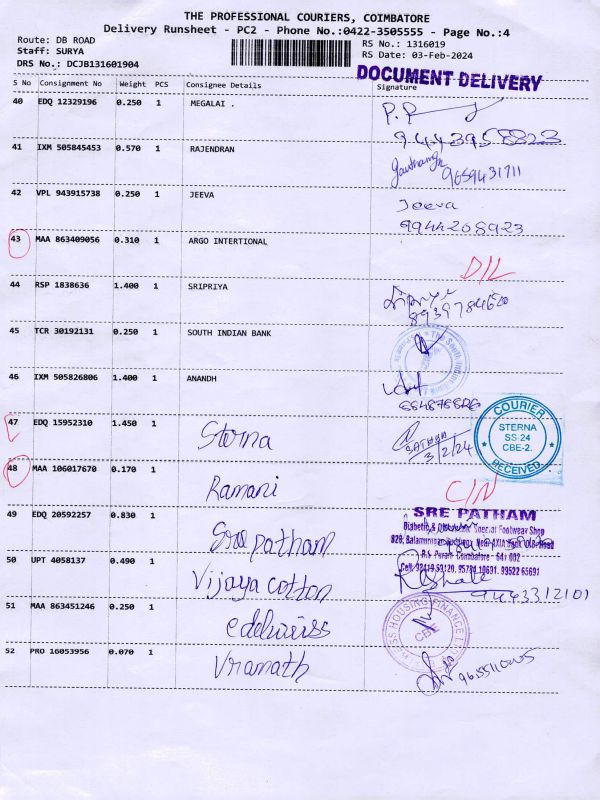 THE PROFESSIONAL COURIERS, COIMBATORE
Delivery Runsheet - PC2 - Phone No.:0422-3505555 - Page No.:4
Route: DB ROAD
RS No.: 1316019
Staff: SURYA
RS Date: 03-Feb-2024
DRS No.: DCJB131601904
DOCUMENT DELIVERY
S No Consignment No Weight PCS Consignee Details Signature
40 EDQ 12329196 0.250 1 MEGALAI .
9443958823
41 IXM 505845453 0.570 1 RAJENDRAN
9659431711
42 VPL 943915738 0.250 1 JEEVA
Jeeva
9944208923
43 MAA 863409056 0.310 1 ARGO INTERTIONAL
D/L
44 RSP 1838636 1.400 1 SRIPRIYA
45 TCR 30192131 0.250 1 SOUTH INDIAN BANK
46 IXM 505826806 1.400 1 ANANDH
47 EDQ 15952310 1.450 1 Sterna
3/2/24
COURIER
STERNA
SS-24
CBE-2.
RECEIVED
48 MAA 106017670 0.170 1 Ramani
C/N
49 EDQ 20592257 0.830 1 Sree patham
SRE PATHAM
Footwear Shop
R.S. Puram Coimbatore - 641 002
50 UPT 4058137 0.490 1 Vijaya cotton
9443312101
51 MAA 863451246 0.250 1 edelwiess
HOUSING FINANCE
CBE
52 PRO 16053956 0.070 1 Vramath